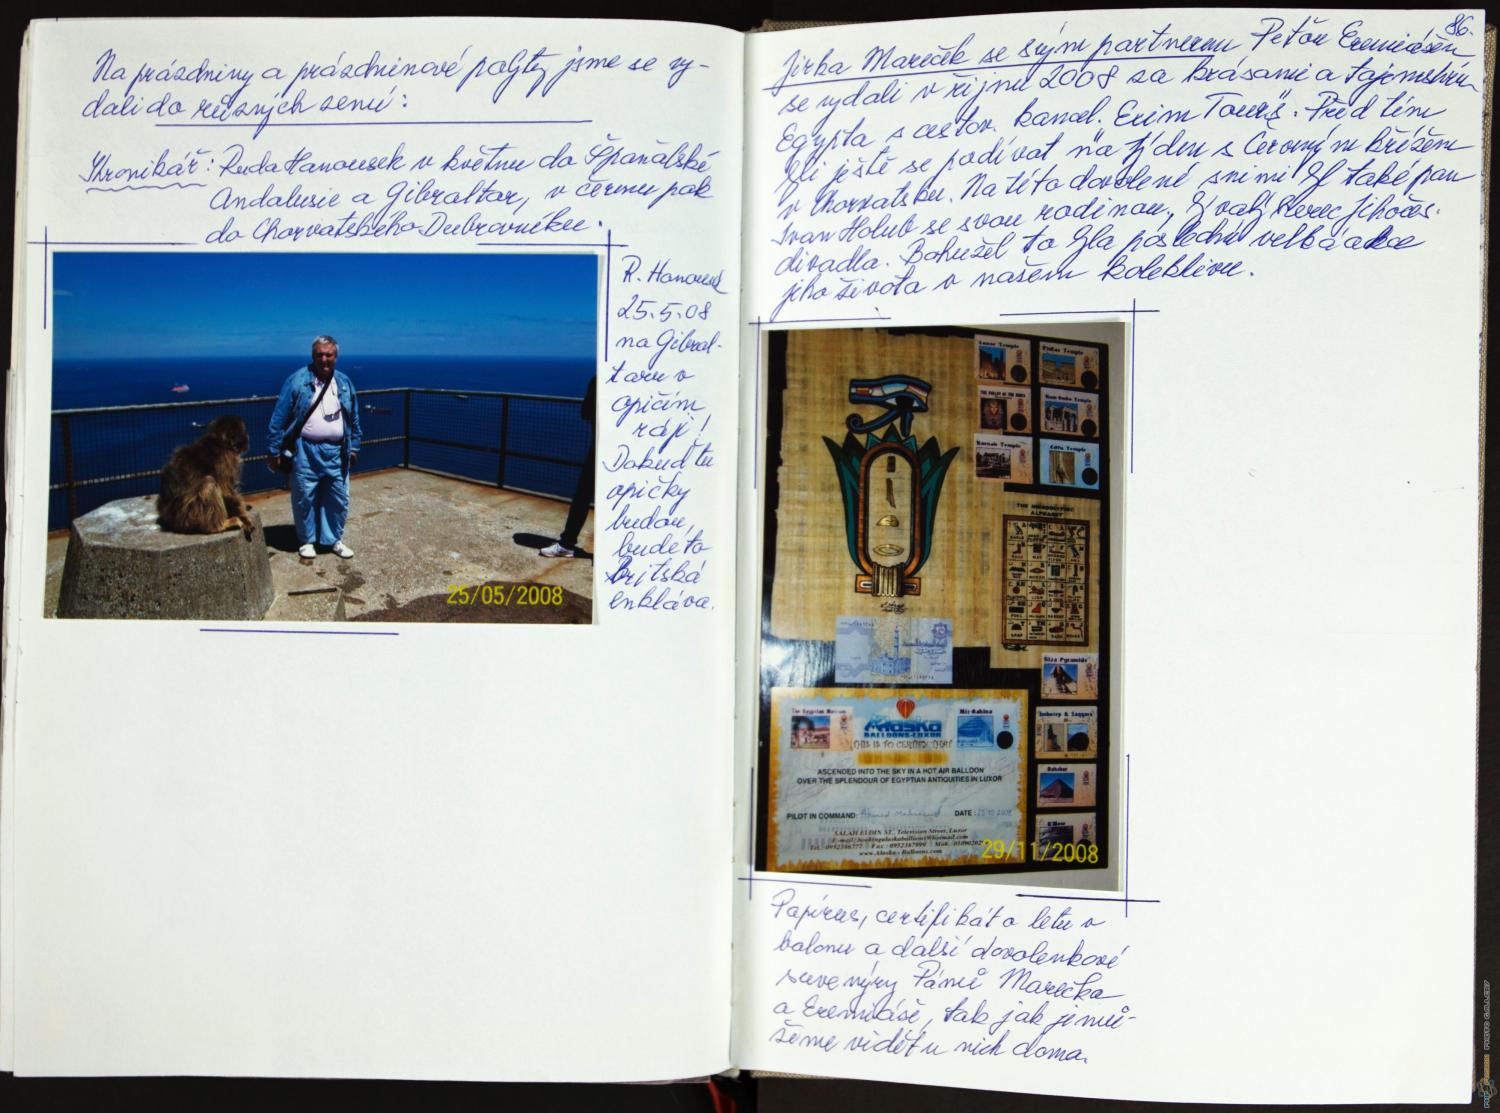 Na prázdniny a prázdninové pobyty jsme se vy-
dali do různých zemí:
Kronikář: Ruda Hanousek v květnu do Španělské
Andalusie a Gibraltar, v červnu pak
do Chorvatského Dubrovníku.
R. Hanousek
25.5.08
na Gibral-
taru v
opičím
ráji!
Dokud tu
opičky
budou,
bude to
Britská
enkláva.
25/05/2008
86.
Jirka Mareček se svým partnerem Petrem Eremiášem
se vydali v říjnu 2008 za krásami a tajemstvím
Egypta s cestov. kancel. Exim Tours. Před tím
byli ještě se podívat na týden s Červeným křížem
v Chorvatsku. Na této dovolené s nimi byl také pan
Ivan Holub se svou rodinou, bývalý herec Jihočes.
divadla. Bohužel to byla poslední velká akce
jeho života v našem kolektivu.
Luxor Temple
Philae Temple
THE VALLEY OF THE KINGS
Kom-Ombo Temple
Karnak Temple
Edfu Temple
THE HIEROGLYPHIC
ALPHABET
Giza Pyramids
The Egyptian Museum
Alaska
BALLOONS-LUXOR
Mit-Rahina
THIS IS TO CERTIFY THAT
ASCENDED INTO THE SKY IN A HOT AIR BALLOON
OVER THE SPLENDOUR OF EGYPTIAN ANTIQUITIES IN LUXOR
PILOT IN COMMAND: DATE:
SALAH ELDIN ST., Television Street, Luxor
www.Alaska-Balloons.com
Dahshur
29/11/2008
Papírus, certifikát o letu v
balonu a další dovolenkové
suvenýry Pánů Marečka
a Eremiáše, tak jak je mů-
žeme vidět u nich doma.
PHOTO GALLERY